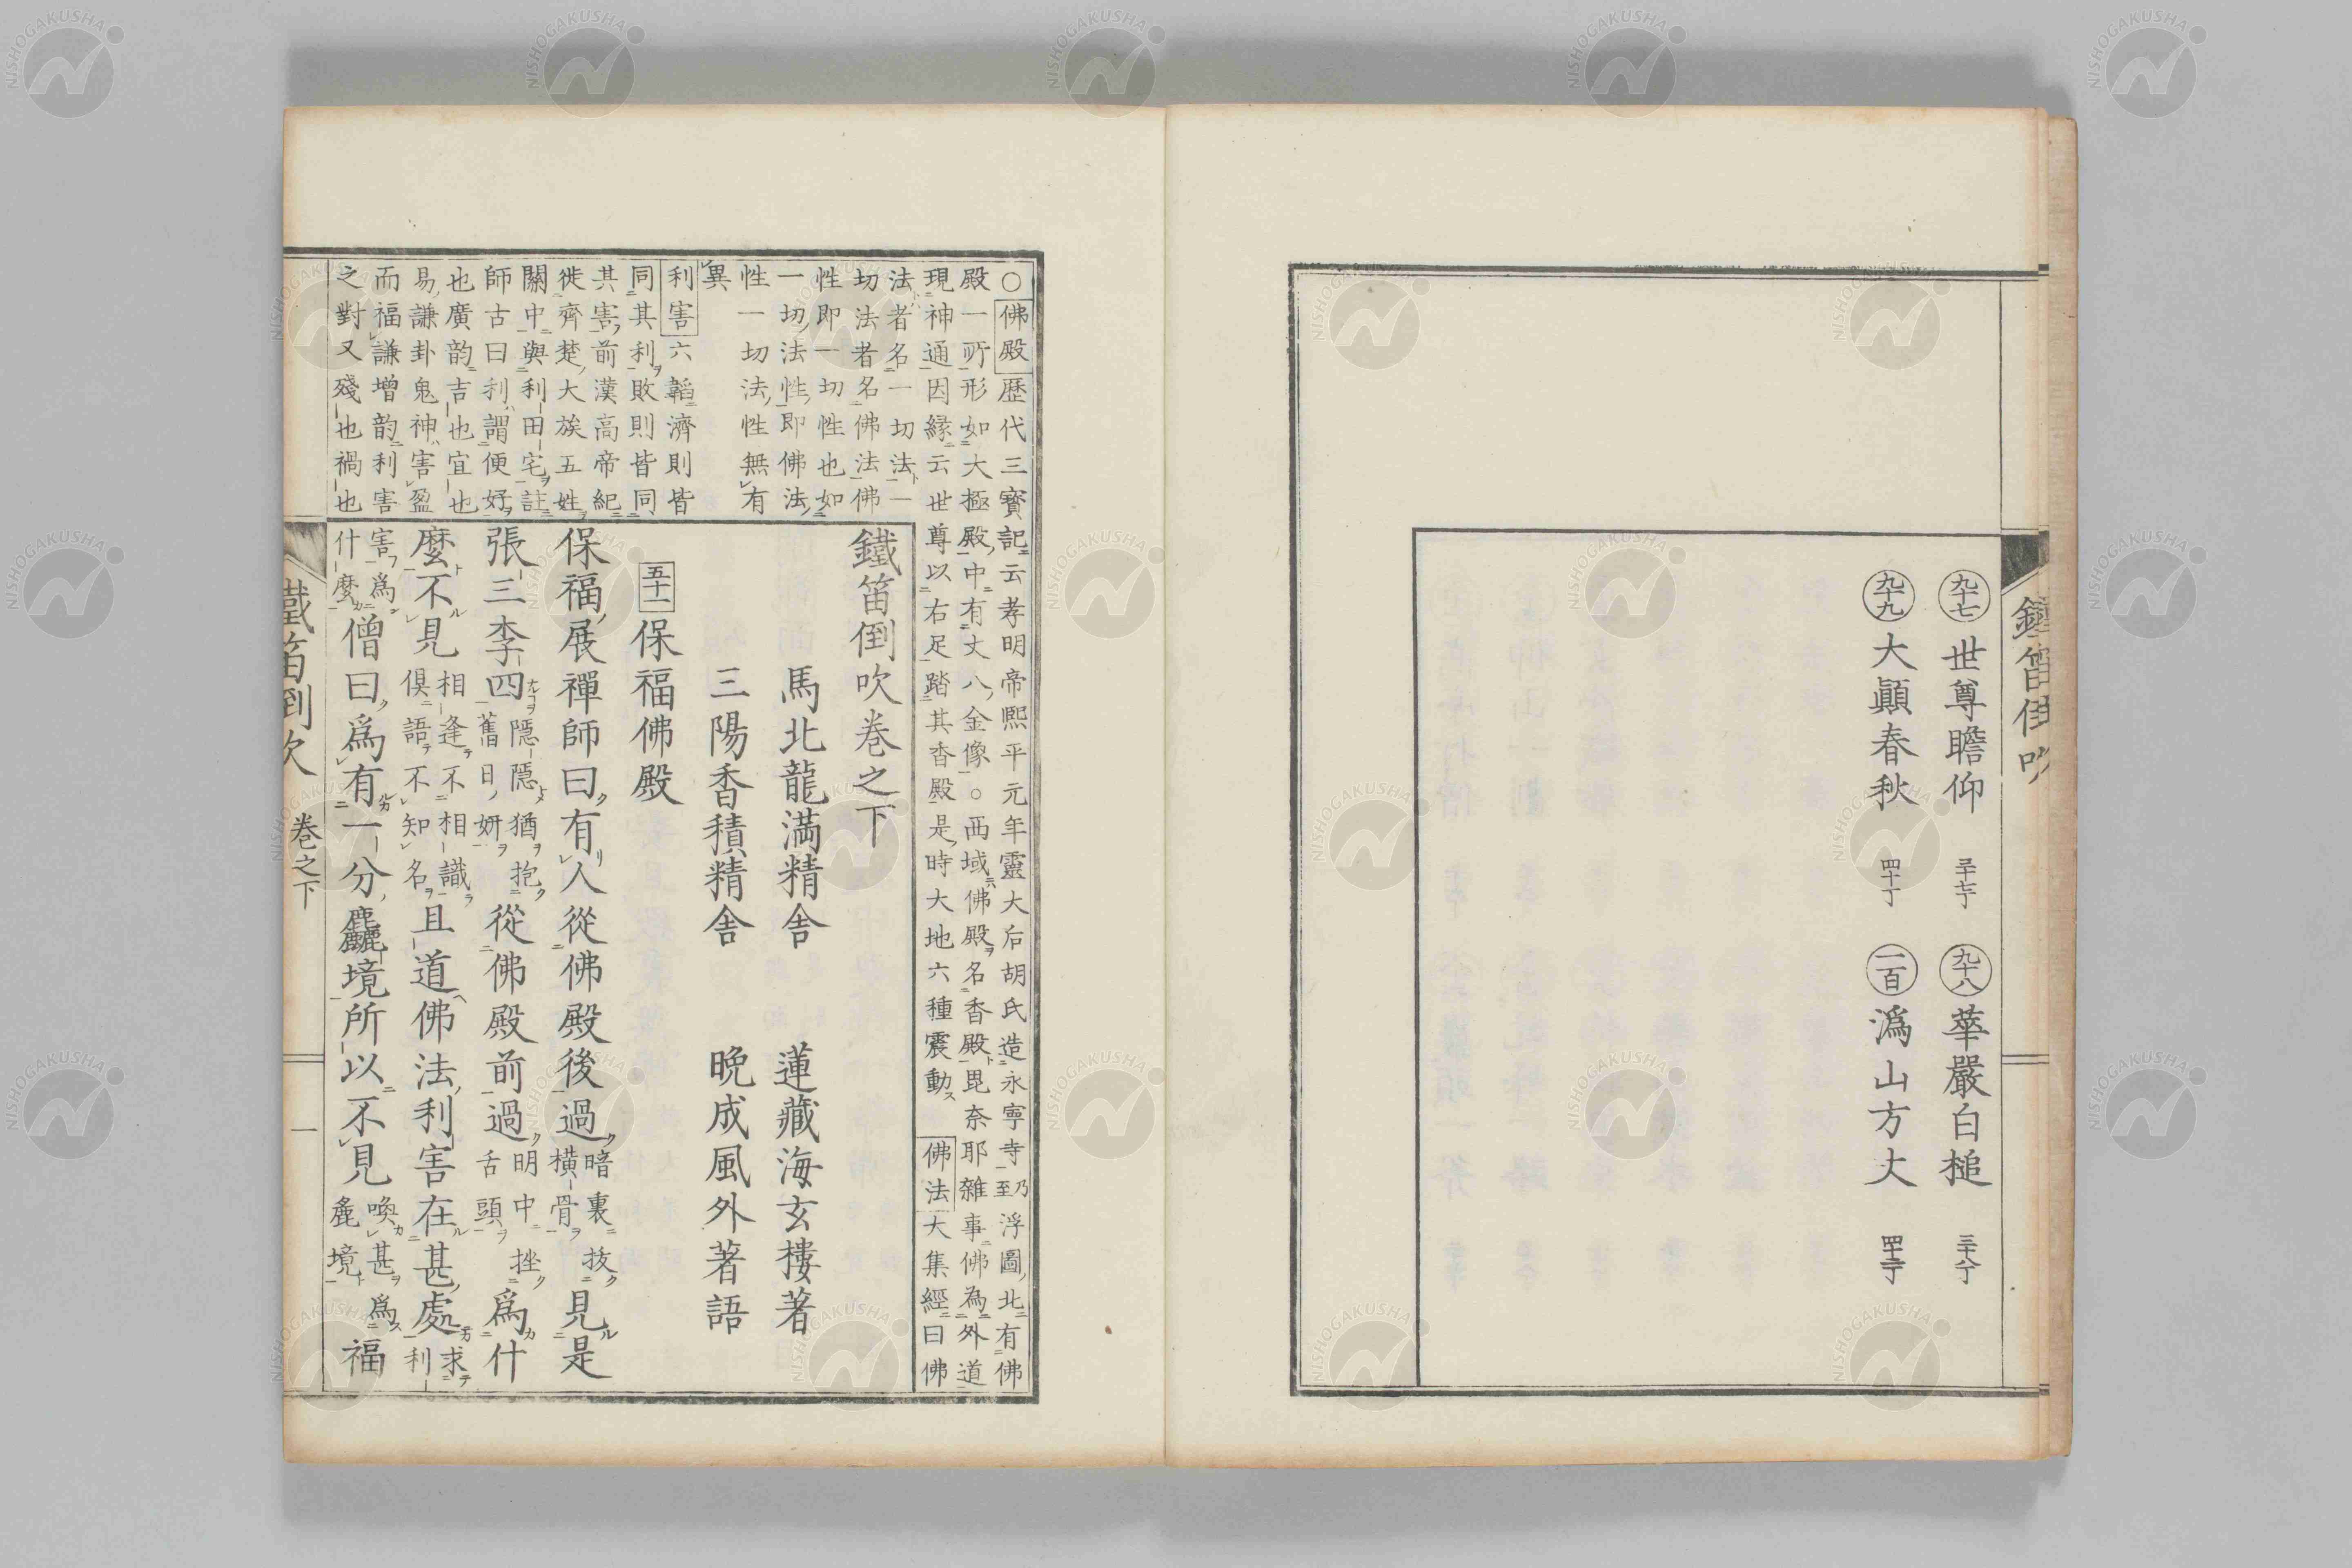 鐵笛倒吹
九十七 世尊瞻仰 三十七丁 九十八 華嚴白槌 三十八丁
九十九 大顚春秋 四十丁 一百 潙山方丈
○佛殿歷代三寶記云孝明帝熙平元年靈大后胡氏造永寧寺乃至浮圖北有佛
殿一所形如大極殿中有丈八金像○西域佛殿名香殿毘奈耶雜事佛為外道
現神通因縁云世尊以右足踏其香殿是時大地六種震動ス 佛法大集經曰佛
法者名一切法一
切法者名佛法佛
性即一切性也如
一切法性即佛法
性一切法性無有
異
利害六韜濟則皆
同其利敗則皆同
其害前漢高帝紀
徙齊楚大族五姓
關中與利田宅註
師古曰利謂便好
也廣韵吉也宜也
易謙卦鬼神害盈
而福謙增韵利害
之對又殘也禍也
鐵笛倒吹卷之下
馬北龍満精舎 蓮藏海玄樓著
三陽香積精舎 晩成風外著語
五十一 保福佛殿
保福展禪師曰有人從佛殿後過暗裏抜横骨見是
張三李四隱隱猶抱舊日妍從佛殿前過明中挫舌頭爲什
麼不見相逢不相識倶語不知名且道佛法利害在甚處求利
害爲什麼僧曰爲有一分麤境所以不見喚甚爲麁境福
鐵笛倒吹 卷之下 一
NISHOGAKUSHA